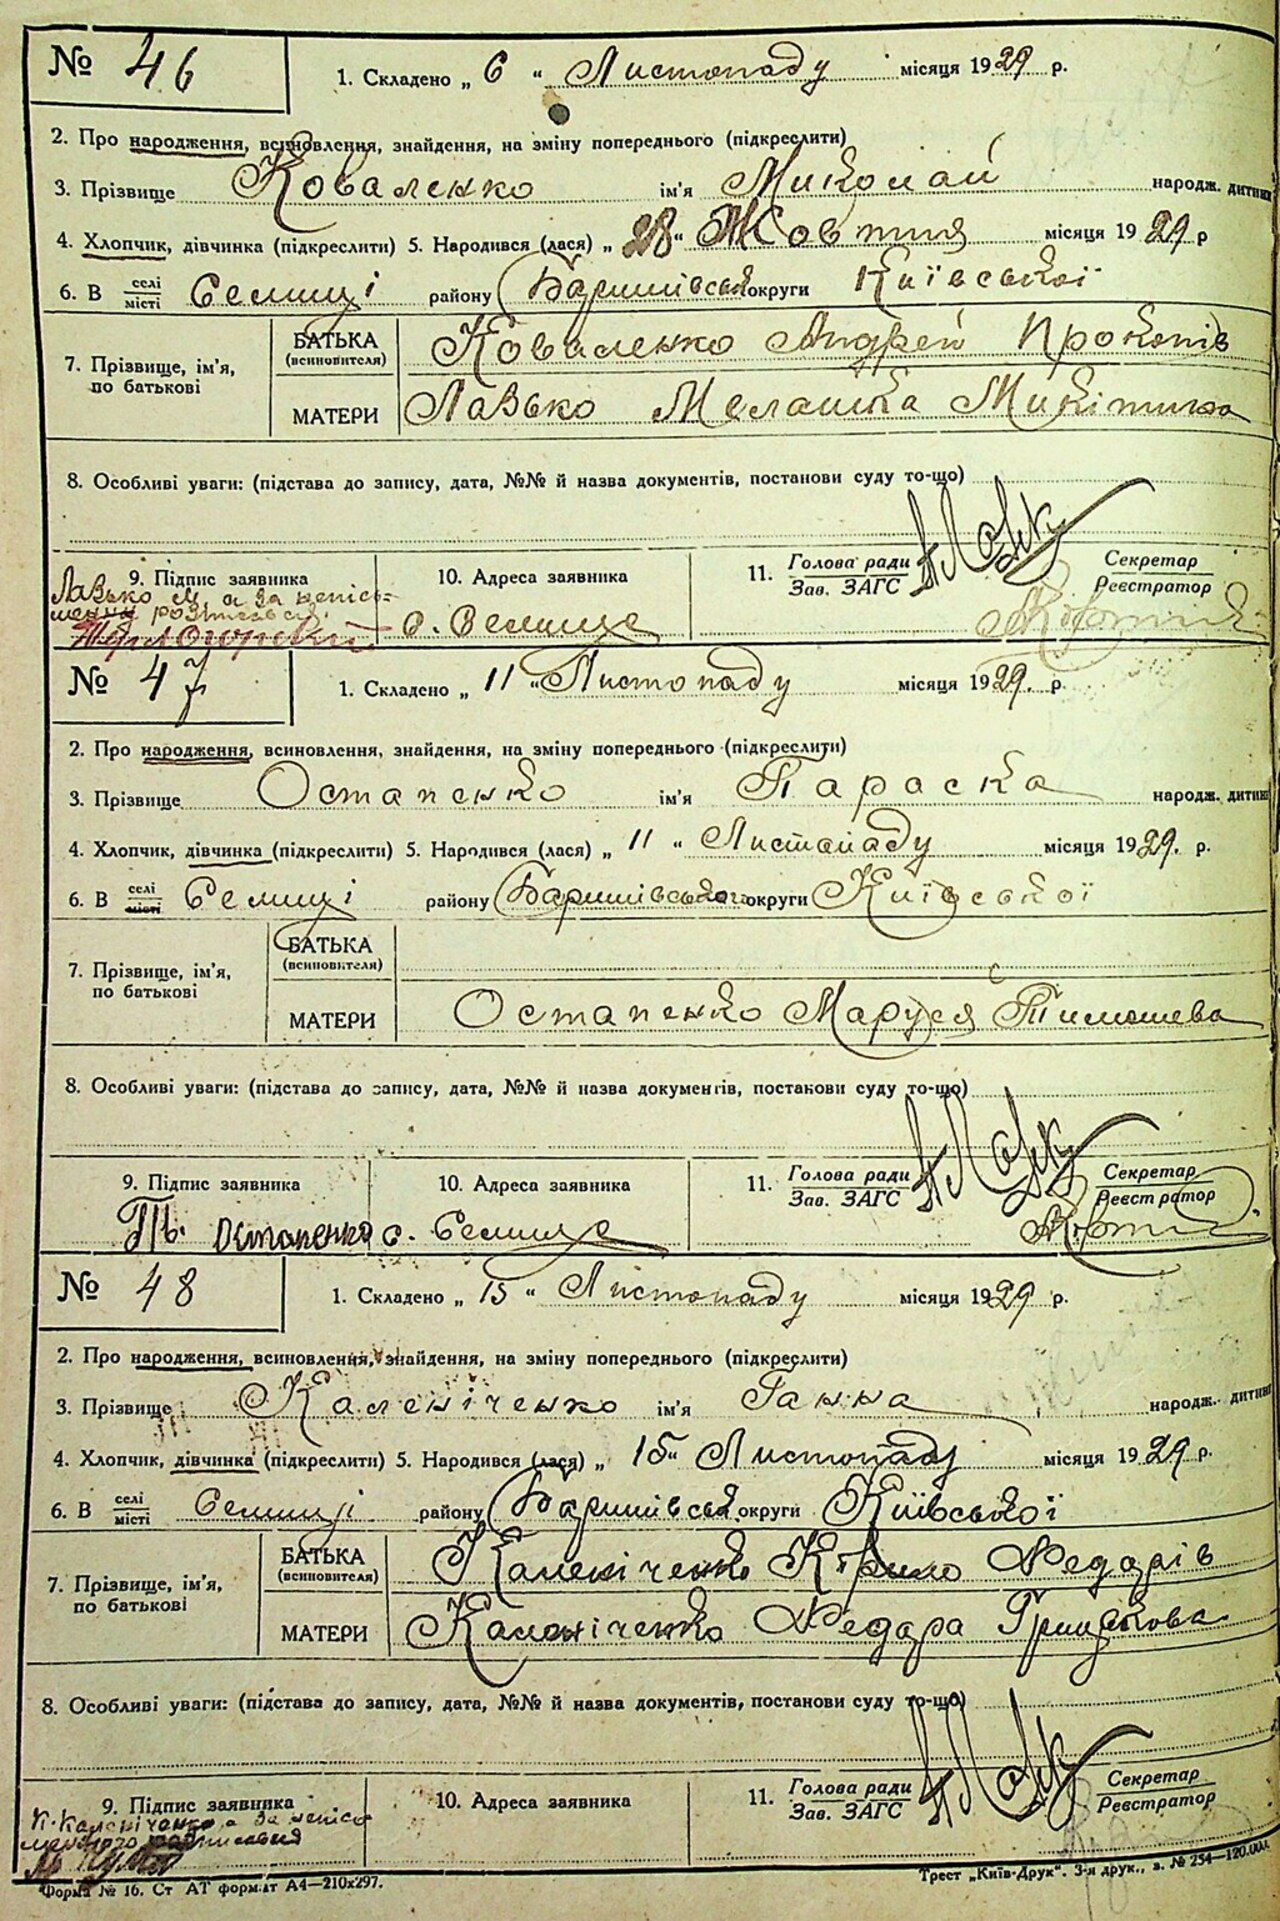 № 46
1. Складено „ 6 “ Листопаду місяця 1929 р.
2. Про народження, всиновлення, знайдення, на зміну попереднього (підкреслити)
3. Прізвище Коваленко ім'я Миколай народж. дитини
4. Хлопчик, дівчинка (підкреслити) 5. Народився (лася) „ 28 “ Жовтня місяця 1929 р
6. В селі місті Селищі району Баришівської округи Київської
7. Прізвище, ім'я, по батькові
БАТЬКА (всиновителя) Коваленко Андрей Прокопів
МАТЕРИ Лазько Мелашка Микітина
8. Особливі уваги: (підстава до запису, дата, №№ й назва документів, постанови суду то-що)
9. Підпис заявника 10. Адреса заявника 11. Голова ради Зав. ЗАГС Секретар Реєстратор
Лазько М а за непісь-
менну розписався
с. Селище
№ 47
1. Складено „ 11 “ Листопаду місяця 1929. р.
2. Про народження, всиновлення, знайдення, на зміну попереднього (підкреслити)
3. Прізвище Остапенко ім'я Параска народж. дитини
4. Хлопчик, дівчинка (підкреслити) 5. Народився (лася) „ 11 “ Листопаду місяця 1929. р.
6. В селі місті Селищі району Баришівського округи Київської
7. Прізвище, ім'я, по батькові
БАТЬКА (всиновителя)
МАТЕРИ Остапенко Маруся Тимошева
8. Особливі уваги: (підстава до запису, дата, №№ й назва документів, постанови суду то-що)
9. Підпис заявника 10. Адреса заявника 11. Голова ради Зав. ЗАГС Секретар Реєстратор
Остапенко с. Селище
№ 48
1. Складено „ 15 “ Листопаду місяця 1929 р.
2. Про народження, всиновлення, знайдення, на зміну попереднього (підкреслити)
3. Прізвище Каленіченко ім'я Ганна народж. дитини
4. Хлопчик, дівчинка (підкреслити) 5. Народився (лася) „ 15 “ Листопаду місяця 1929 р.
6. В селі місті Селищі району Баришівськ. округи Київської
7. Прізвище, ім'я, по батькові
БАТЬКА (всиновителя) Каленіченко Кірило Федарів
МАТЕРИ Каленіченко Федара Грицькова
8. Особливі уваги: (підстава до запису, дата, №№ й назва документів, постанови суду то-що)
9. Підпис заявника 10. Адреса заявника 11. Голова ради Зав. ЗАГС Секретар Реєстратор
К. Каленіченко а за непісь
менного розписався
Форма № 16. Ст АТ формат А4—210х297.
Трест „Київ-Друк“. 3-я друк., з. № 254—120.000.